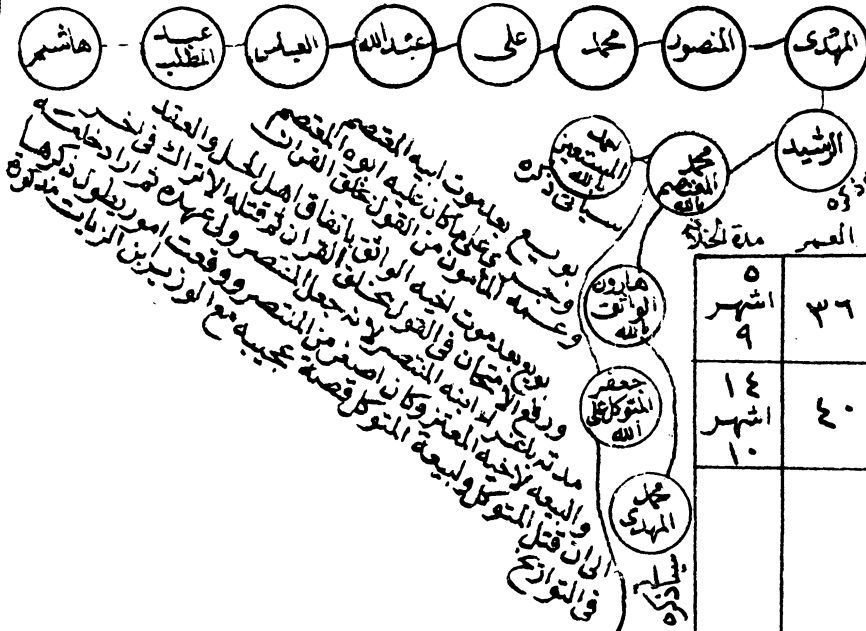 المهدى
المنصور
محمد
على
عبدالله
العباس
عبد المطلب
هاشم
الرشيد
محمد المعتصم بالله
جد المستعين بالله
سياتى ذكره
هارون الواثق بالله
جعفر المتوكل على الله
محمد المهدى
سياتى ذكره
ذكره
العمر
مدة الخلافة
٣٦
٥
اشهر
٩
٤٠
١٤
اشهر
١٠
بويع بعد موت ابيه المعتصم
وجرى على ما كان عليه ابوه المعتصم
وعمه المأمون من القول بخلق القران
بويع بعد موت اخيه الواثق باتفاق اهل الحل والعقد
ورفع الامتحان فى القول بخلق القران ثم قتله الاتراك فى اخر
مدته باغراء ابنه المنتصر لانه جعل المنتصر ولى عهده ثم اراد خلعه
والبيعه لاخيه المعتز وكان اصغر من المنتصر ووقعت امور يطول ذكرها
الى ان قتل المتوكل ولبيعة المتوكل قصة عجيبه مع الوزير بن الزيات مذكورة
فى التواريخ